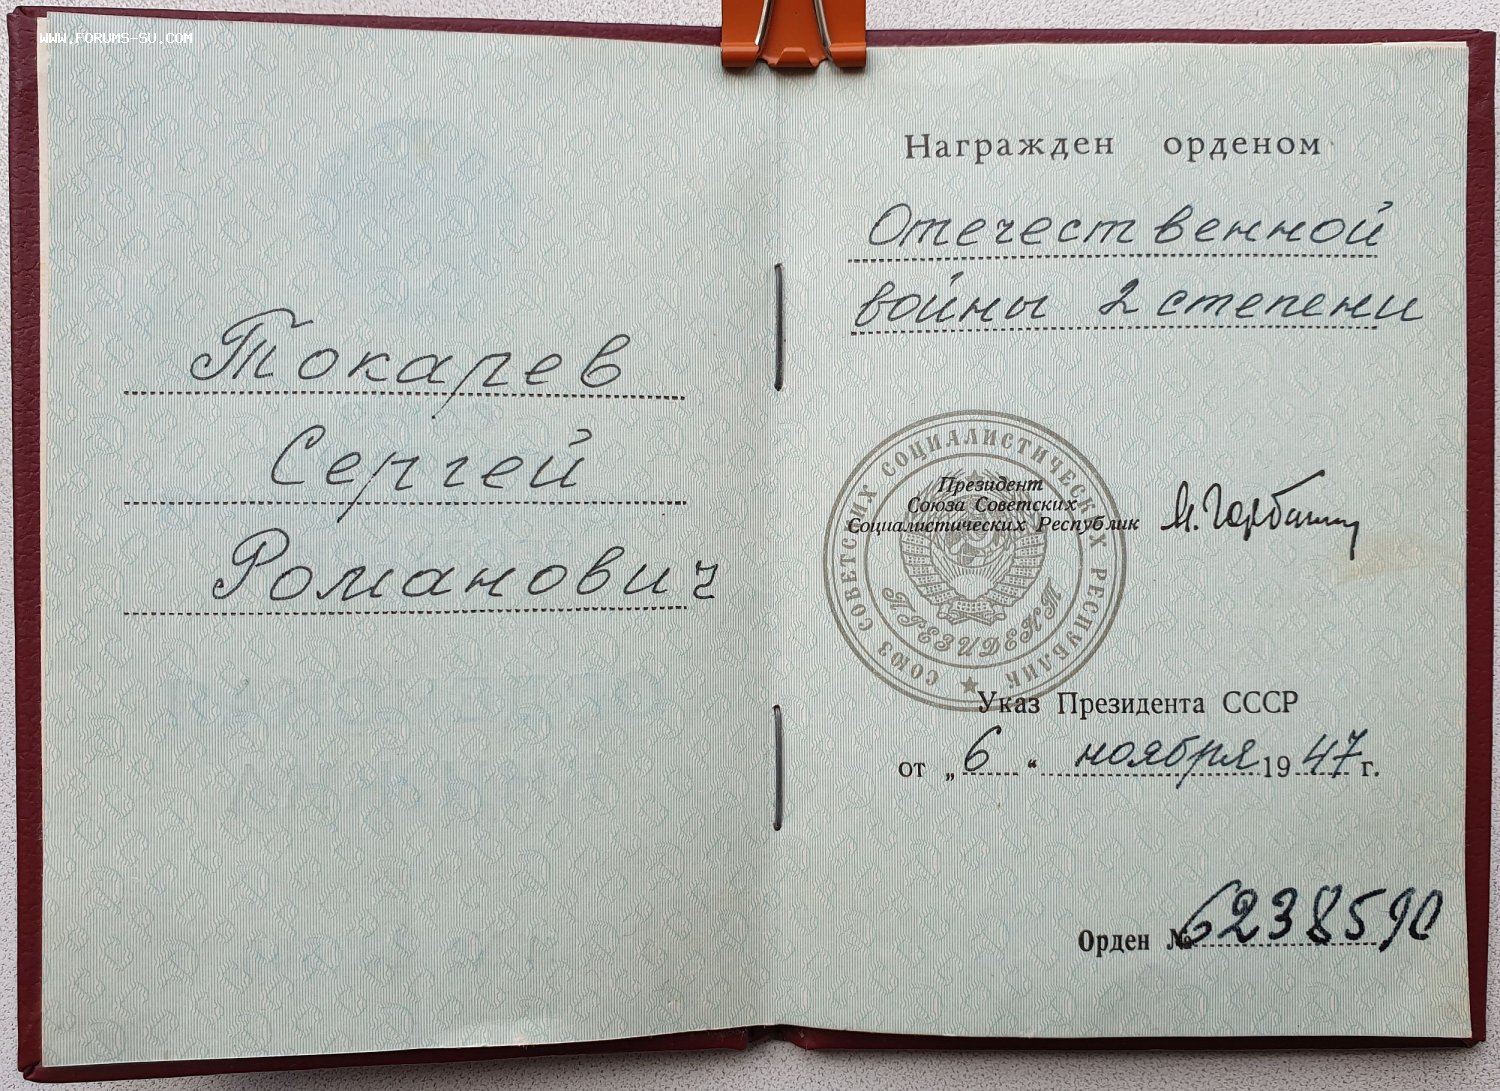 WWW.FORUMS-SU.COM
Токарев
Сергей
Романович
Награжден орденом
Отечественной
войны 2 степени
СОЮЗ СОВЕТСКИХ СОЦИАЛИСТИЧЕСКИХ РЕСПУБЛИК
Президент
Союза Советских
Социалистических Республик М. Горбачев
ПРЕЗИДЕНТ
Указ Президента СССР
от „6“ ноября 1947 г.
Орден № 6238590